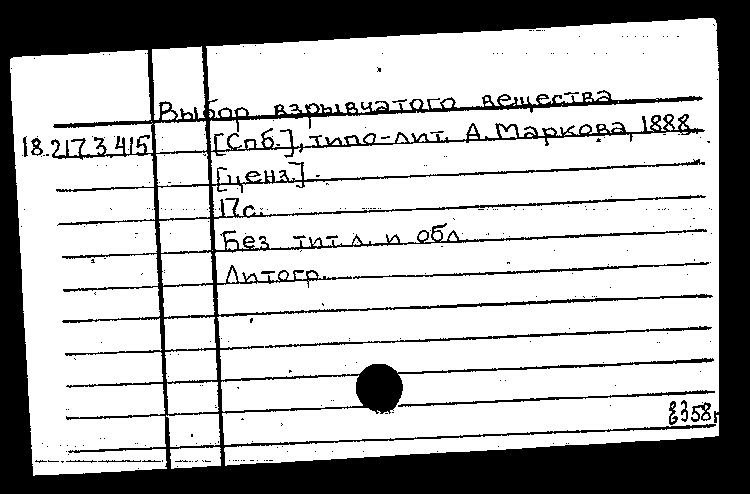 Выбор взрывчатого вещества
18.217.3.415 [Спб.], типо-лит. А. Маркова, 1888.
[ценз.].
17с.
Без тит л. и обл
Литогр.